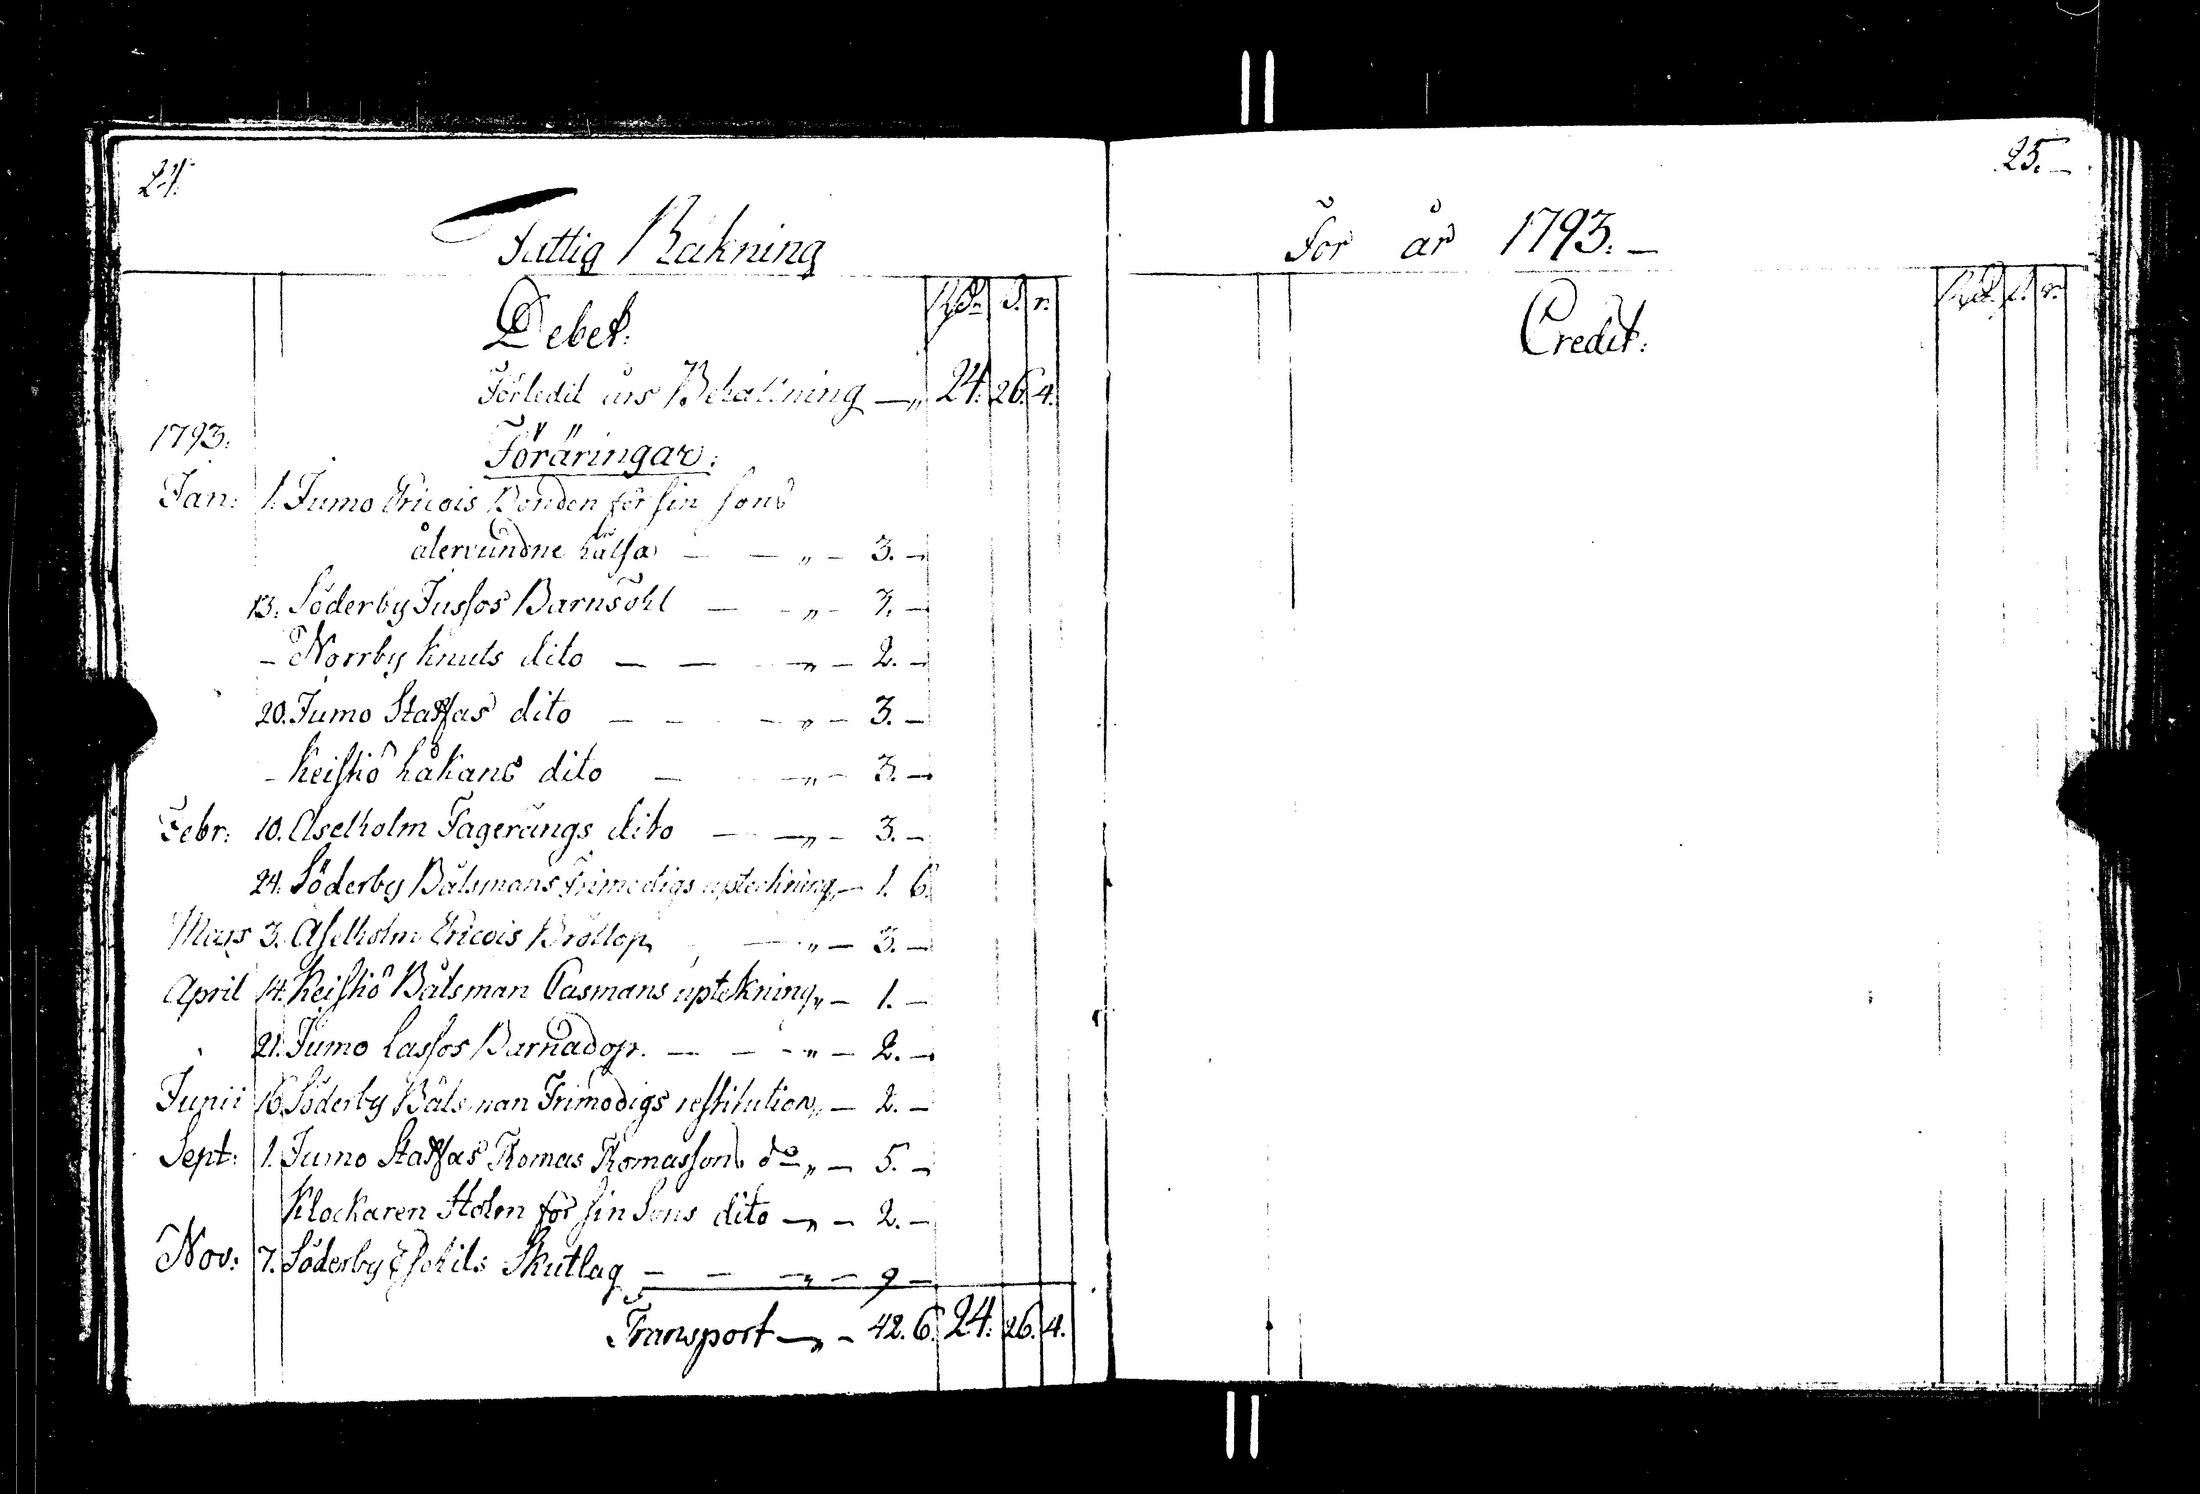 24.
Fattig Räkning
Debet:
Rdr. s. r.
Förledit års Behållning — „ 24. 26. 4.
1793.
Föräringar:
Jan: 1. Jumo Ericois Bonden för sin sons
återvundne hälsa — — „ — 3. —
13. Söderby Jussos Barnsöhl — - „ - 3. —
— Norrby Knuts dito — — — „ — 2. —
20. Jumo Staffas dito — — — „ — 3. —
- Keistiö Håkans dito — — „ — 3. —
Febr: 10. Aselholm Fagerängs dito — — „ — 3. —
24. Söderby Båtsmans Frimodigs upteckning „ — 1. 6.
Mars 3. Aselholm Ericois Bröllop — „ — 3. —
April 14. Keistiö Båtsman Pasmans uptekning „ — 1. —
21. Jumo Lassos Barnadop. — — - „ — 2. —
Junii 16. Söderby Båtsman Frimodigs restitution „ — 2. —
Sept: 1. Jumo Staffas Thomas Thomassons do „ — 5. —
Klockaren Holm för sin Sons dito — „ — 2. —
Nov: 7. Söderby Eskils Skutlag — — — „ — 9 —
Transport — „ - 42. 6. 24. 26. 4.
25. —
För år 1793. —
Credit:
Rdr. s. r.